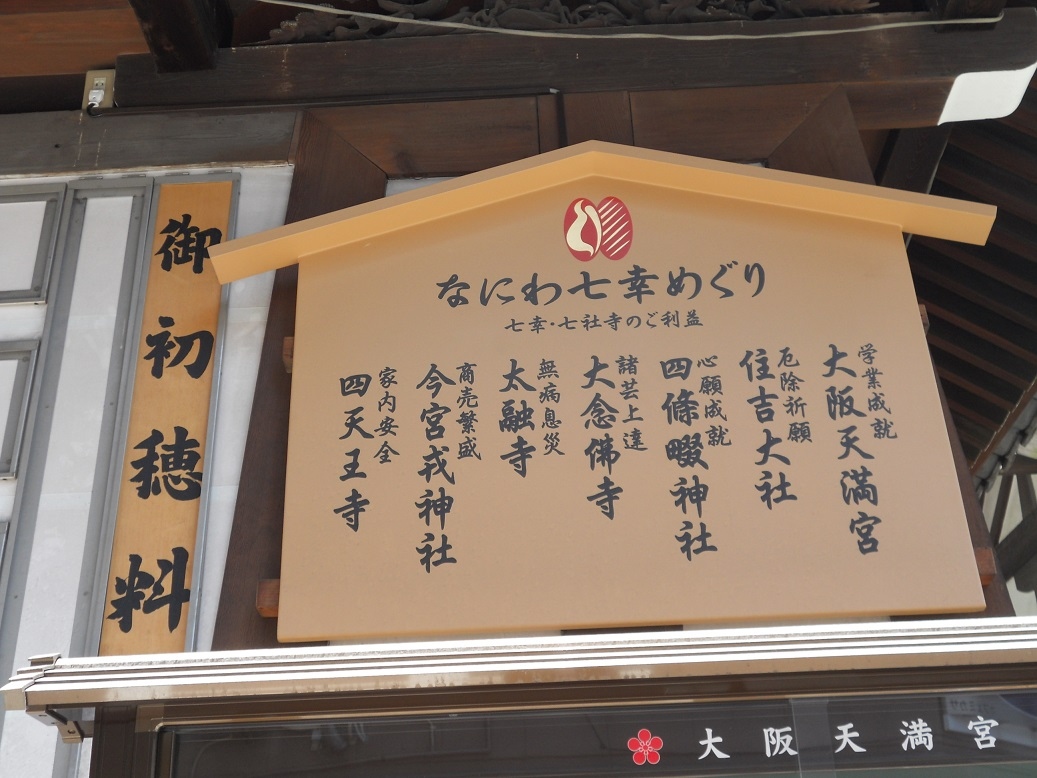 なにわ七幸めぐり
七幸・七社寺のご利益
学業成就
大阪天満宮
厄除祈願
住吉大社
心願成就
四條畷神社
諸芸上達
大念佛寺
無病息災
太融寺
商売繁盛
今宮戎神社
家内安全
四天王寺
御初穂料
大阪天満宮